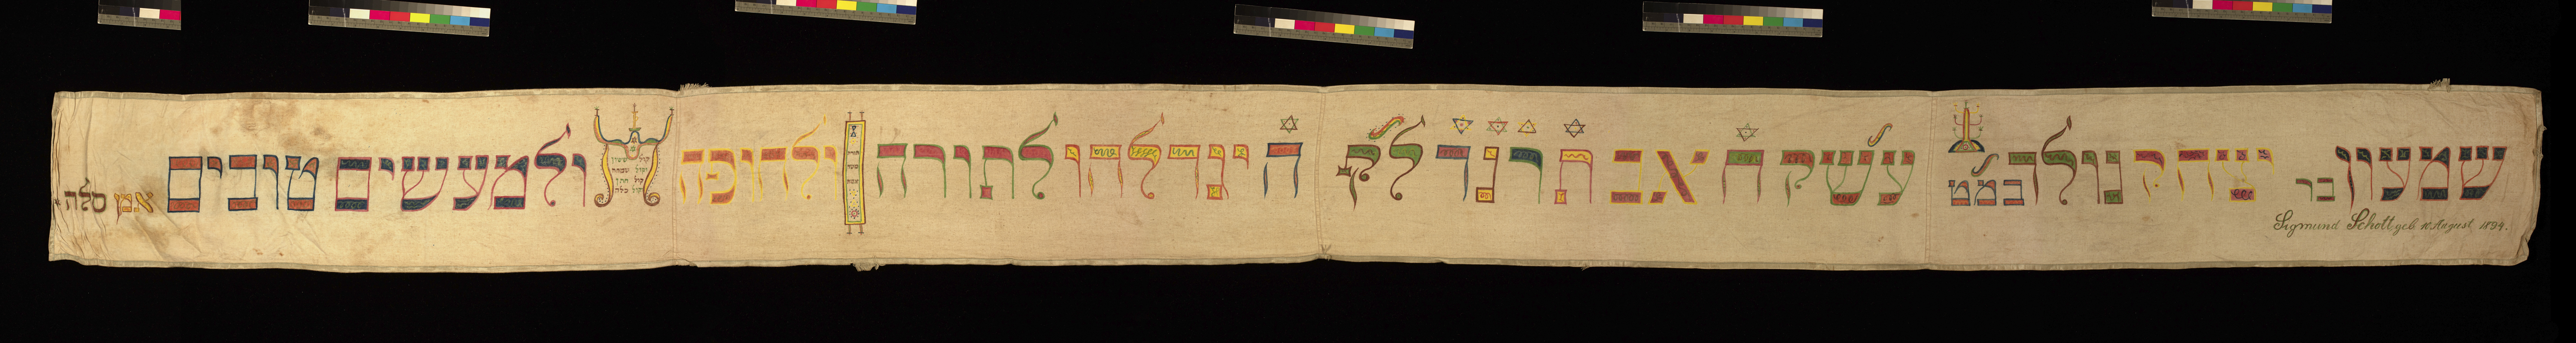 שמעון בר יצחק נולד במ"מ עשק ח אב תרנד לפק ה יגדלהו לתורה ולחופה ולמעשים טובים אמן סלה
קול ששון
וקול שמחה
קול חתן
וקול כלה
Sigmund Schott geb 10. August 1894.